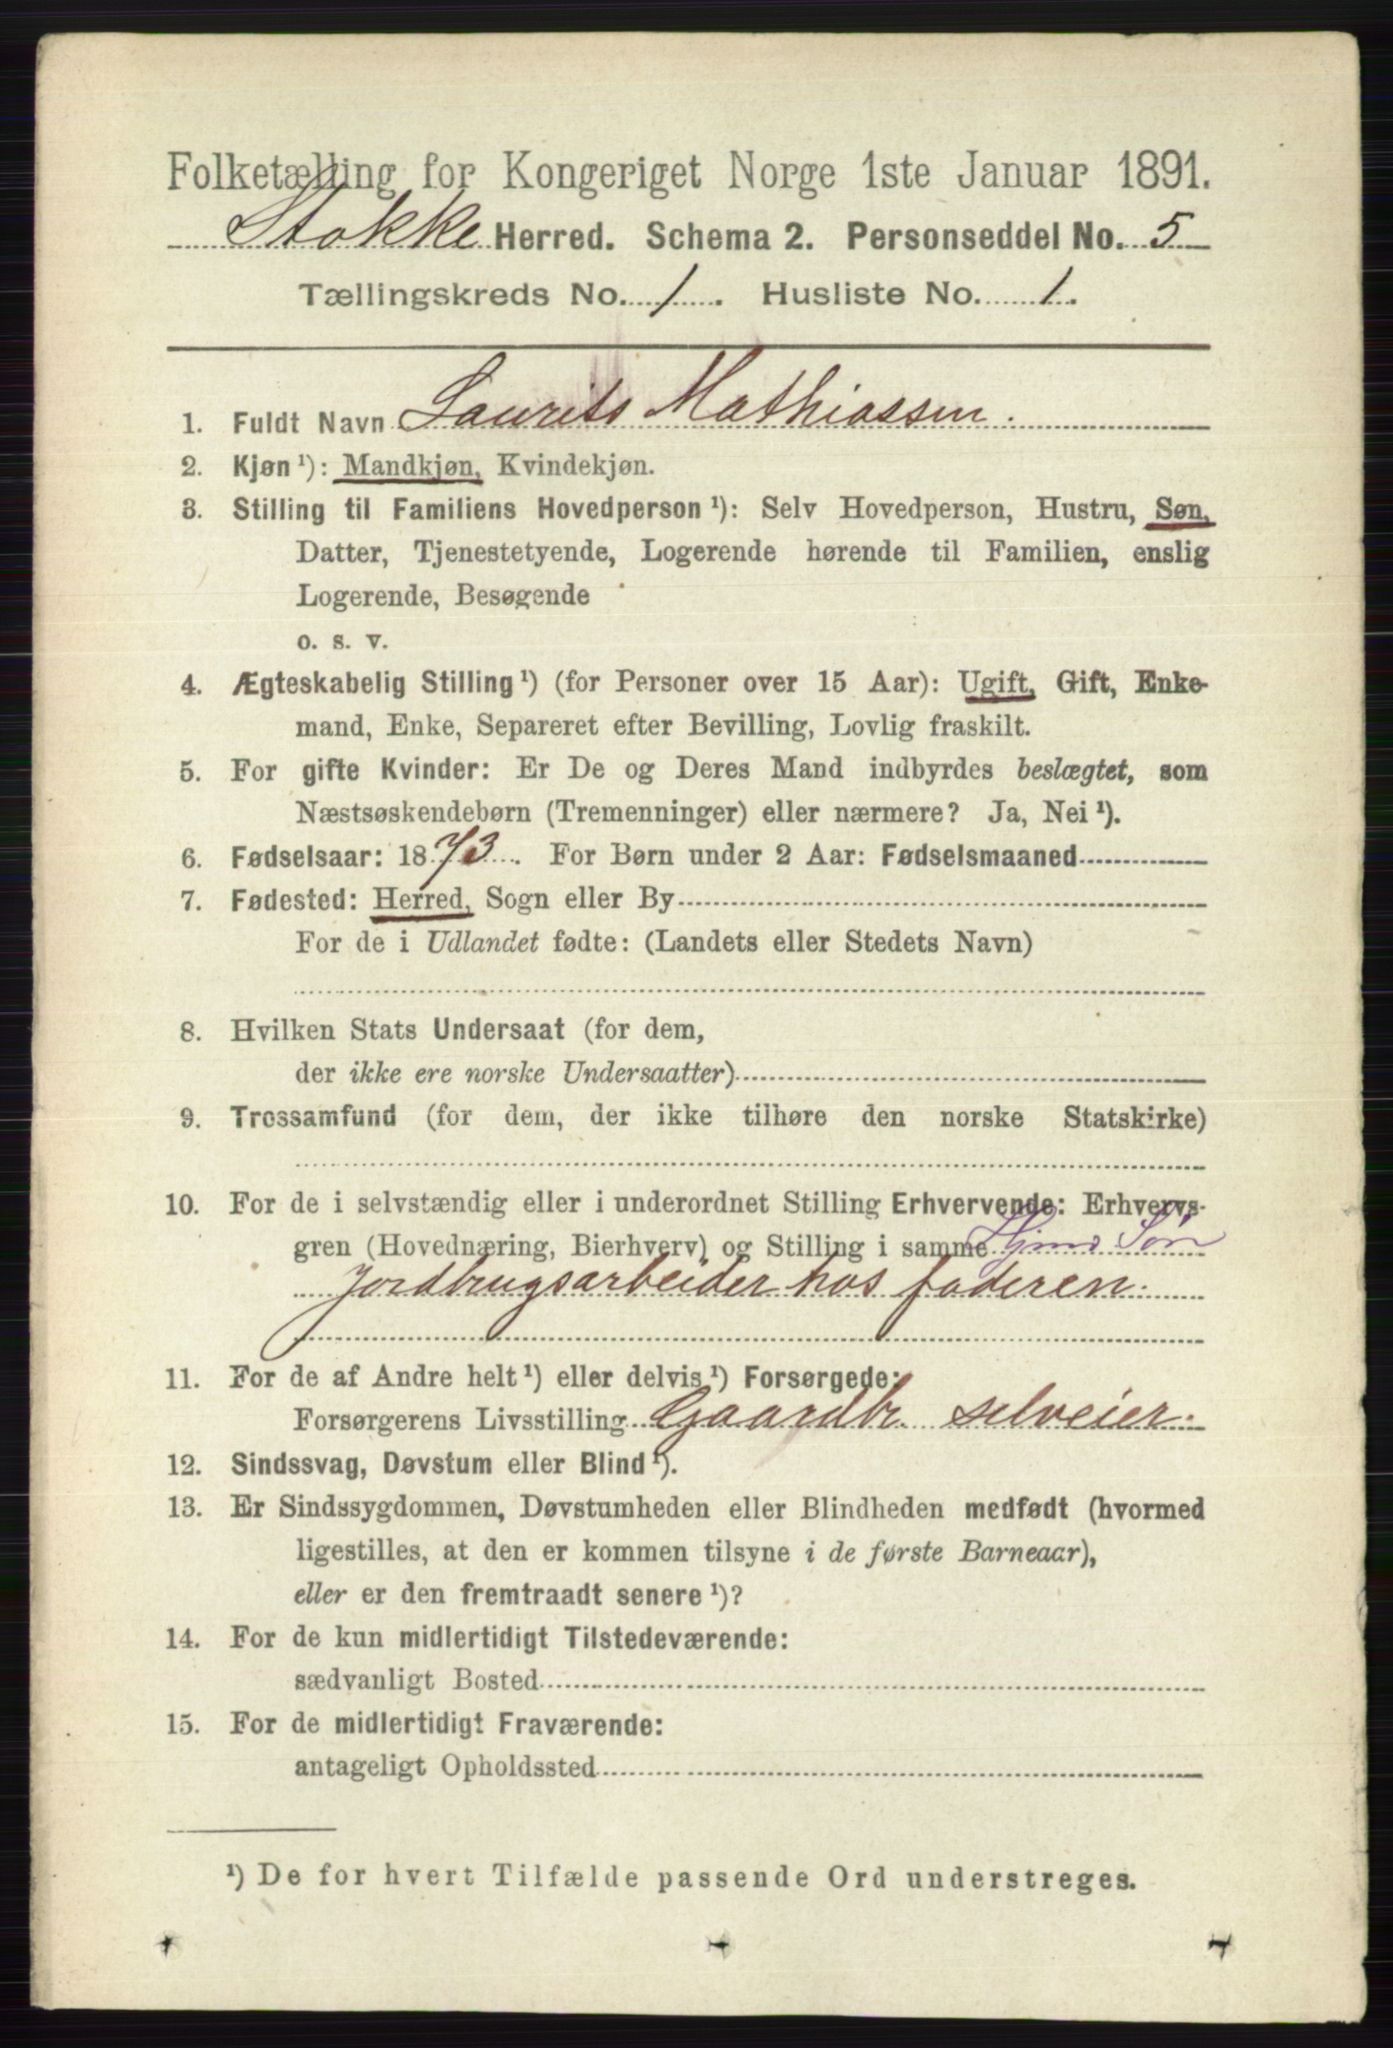 Folketælling for Kongeriget Norge 1ste Januar 1891.
Stokke Herred. Schema 2. Personseddel No. 5
Tællingskreds No. 1. Husliste No. 1.
1. Fuldt Navn Laurits Mathiassen.
2. Kjøn ¹): Mandkjøn, Kvindekjøn.
3. Stilling til Familiens Hovedperson ¹): Selv Hovedperson, Hustru, Søn,
Datter, Tjenestetyende, Logerende hørende til Familien, enslig
Logerende, Besøgende
o. s. v.
4. Ægteskabelig Stilling ¹) (for Personer over 15 Aar): Ugift, Gift, Enke-
mand, Enke, Separeret efter Bevilling, Lovlig fraskilt.
5. For gifte Kvinder: Er De og Deres Mand indbyrdes beslægtet, som
Næstsøskendebørn (Tremenninger) eller nærmere? Ja, Nei ¹).
6. Fødselsaar: 1873. For Børn under 2 Aar: Fødselsmaaned
7. Fødested: Herred, Sogn eller By
For de i Udlandet fødte: (Landets eller Stedets Navn)
8. Hvilken Stats Undersaat (for dem,
der ikke ere norske Undersaatter)
9. Trossamfund (for dem, der ikke tilhøre den norske Statskirke)
10. For de i selvstændig eller i underordnet Stilling Erhvervende: Erhvervs-
gren (Hovednæring, Bierhverv) og Stilling i samme Hjmv Søn
Jordbrugsarbeider hos faderen.
11. For de af Andre helt ¹) eller delvis ¹) Forsørgede:
Forsørgerens Livsstilling Gaardbr. selveier.
12. Sindssvag, Døvstum eller Blind ¹).
13. Er Sindssygdommen, Døvstumheden eller Blindheden medfødt (hvormed
ligestilles, at den er kommen tilsyne i de første Barneaar),
eller er den fremtraadt senere ¹)?
14. For de kun midlertidigt Tilstedeværende:
sædvanligt Bosted
15. For de midlertidigt Fraværende:
antageligt Opholdssted
¹) De for hvert Tilfælde passende Ord understreges.